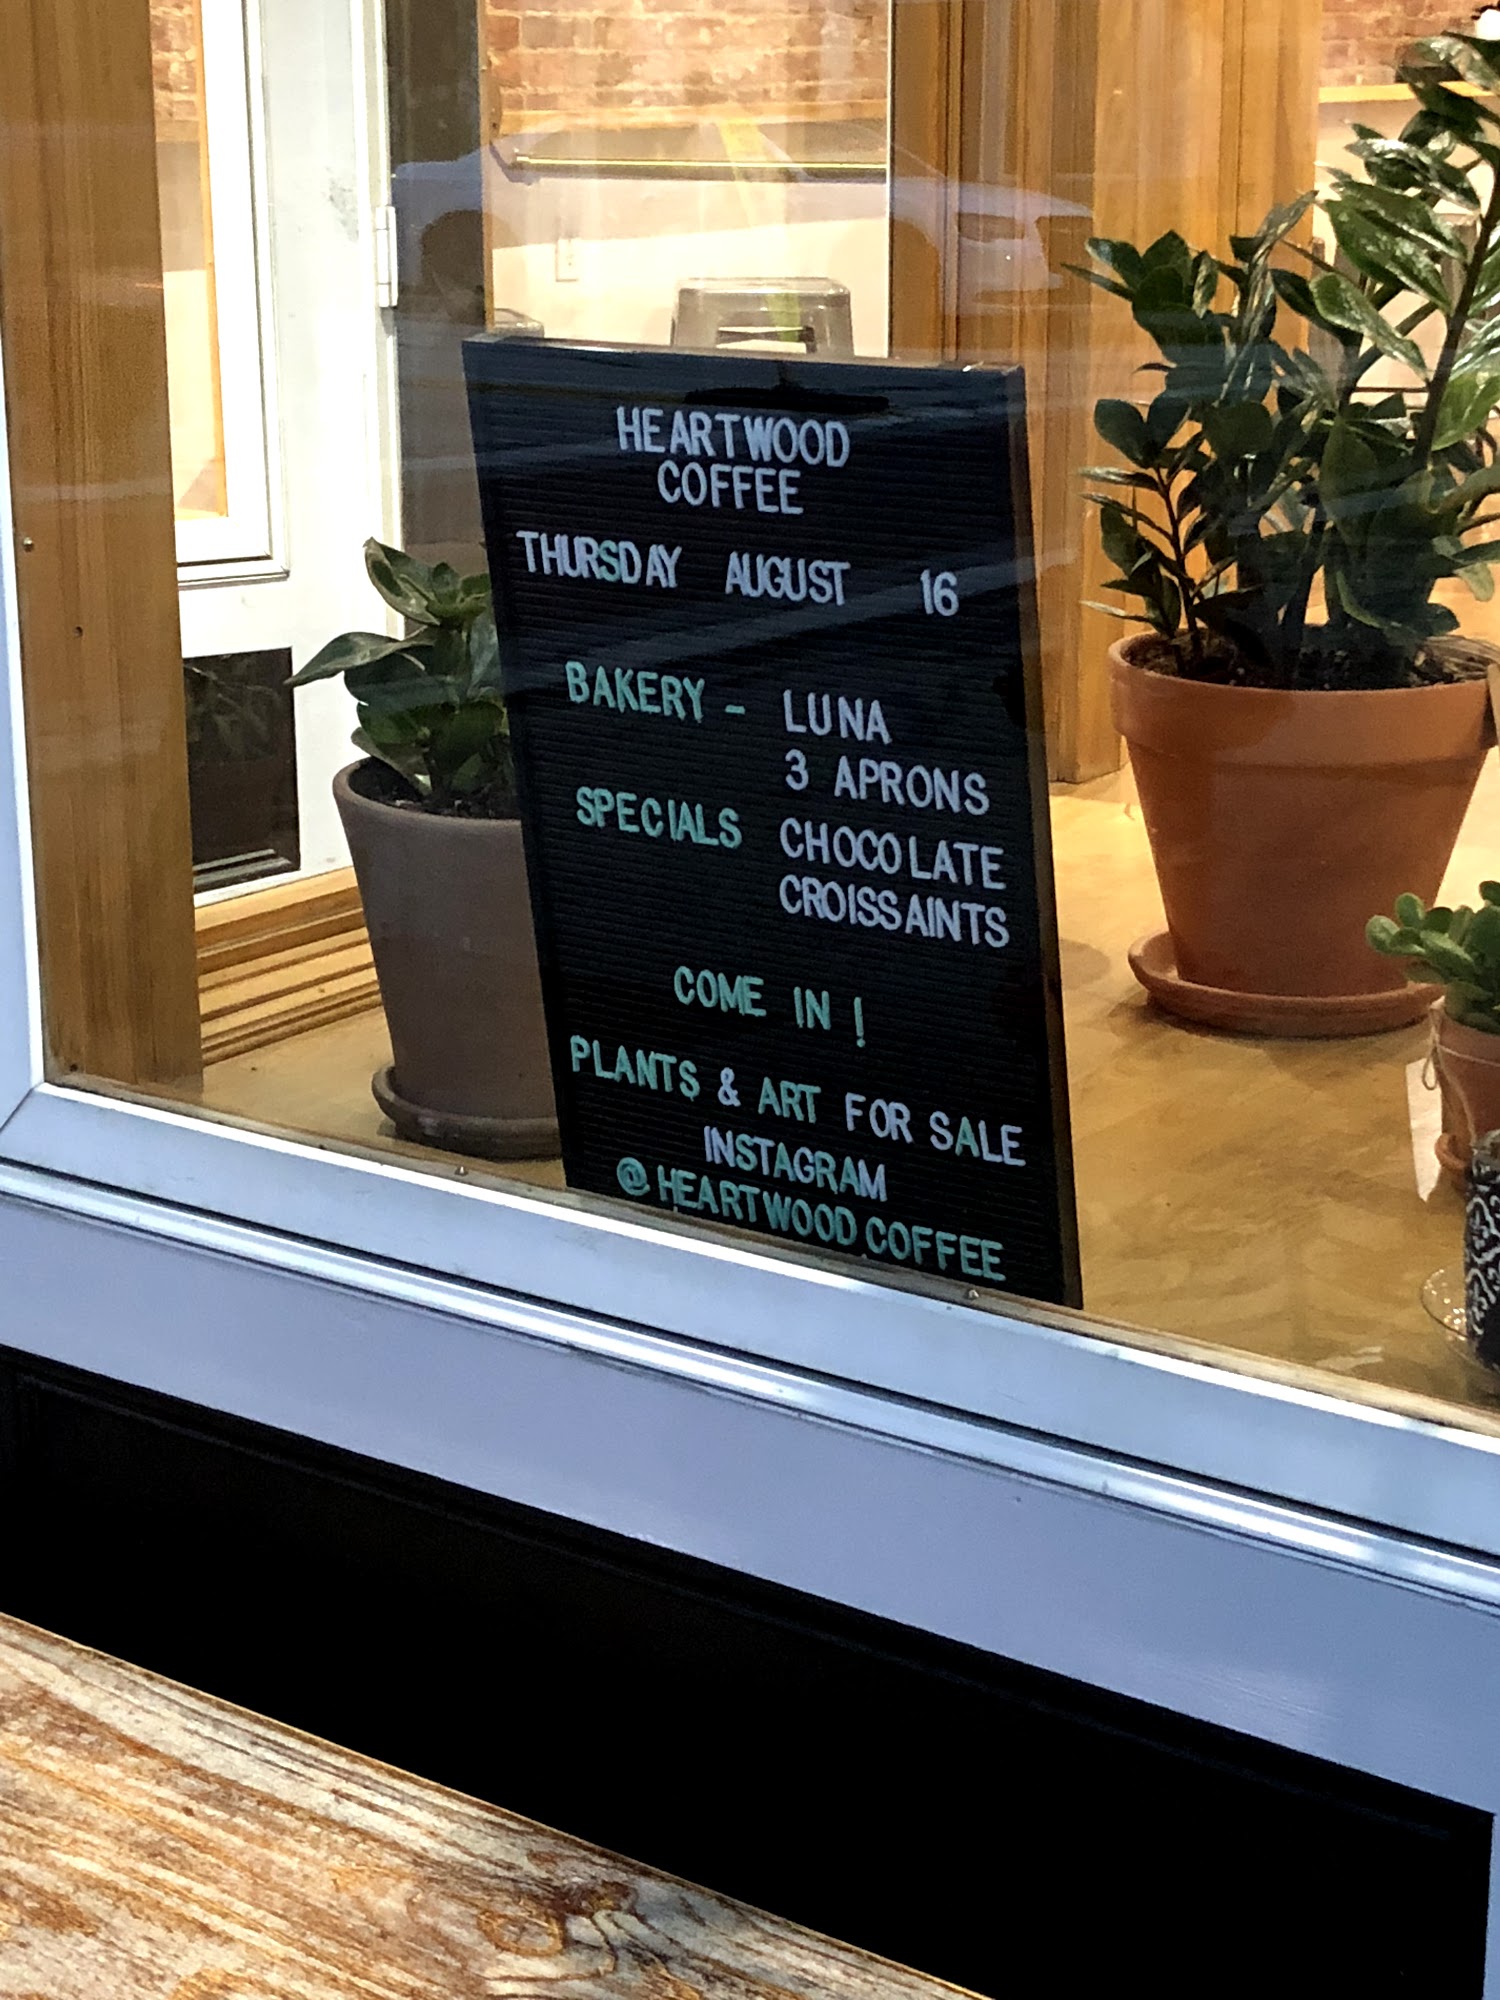 HEARTWOOD
COFFEE
THURSDAY AUGUST 16
BAKERY - LUNA
3 APRONS
SPECIALS CHOCOLATE
CROISSAINTS
COME IN !
PLANTS & ART FOR SALE
INSTAGRAM
@HEARTWOODCOFFEE